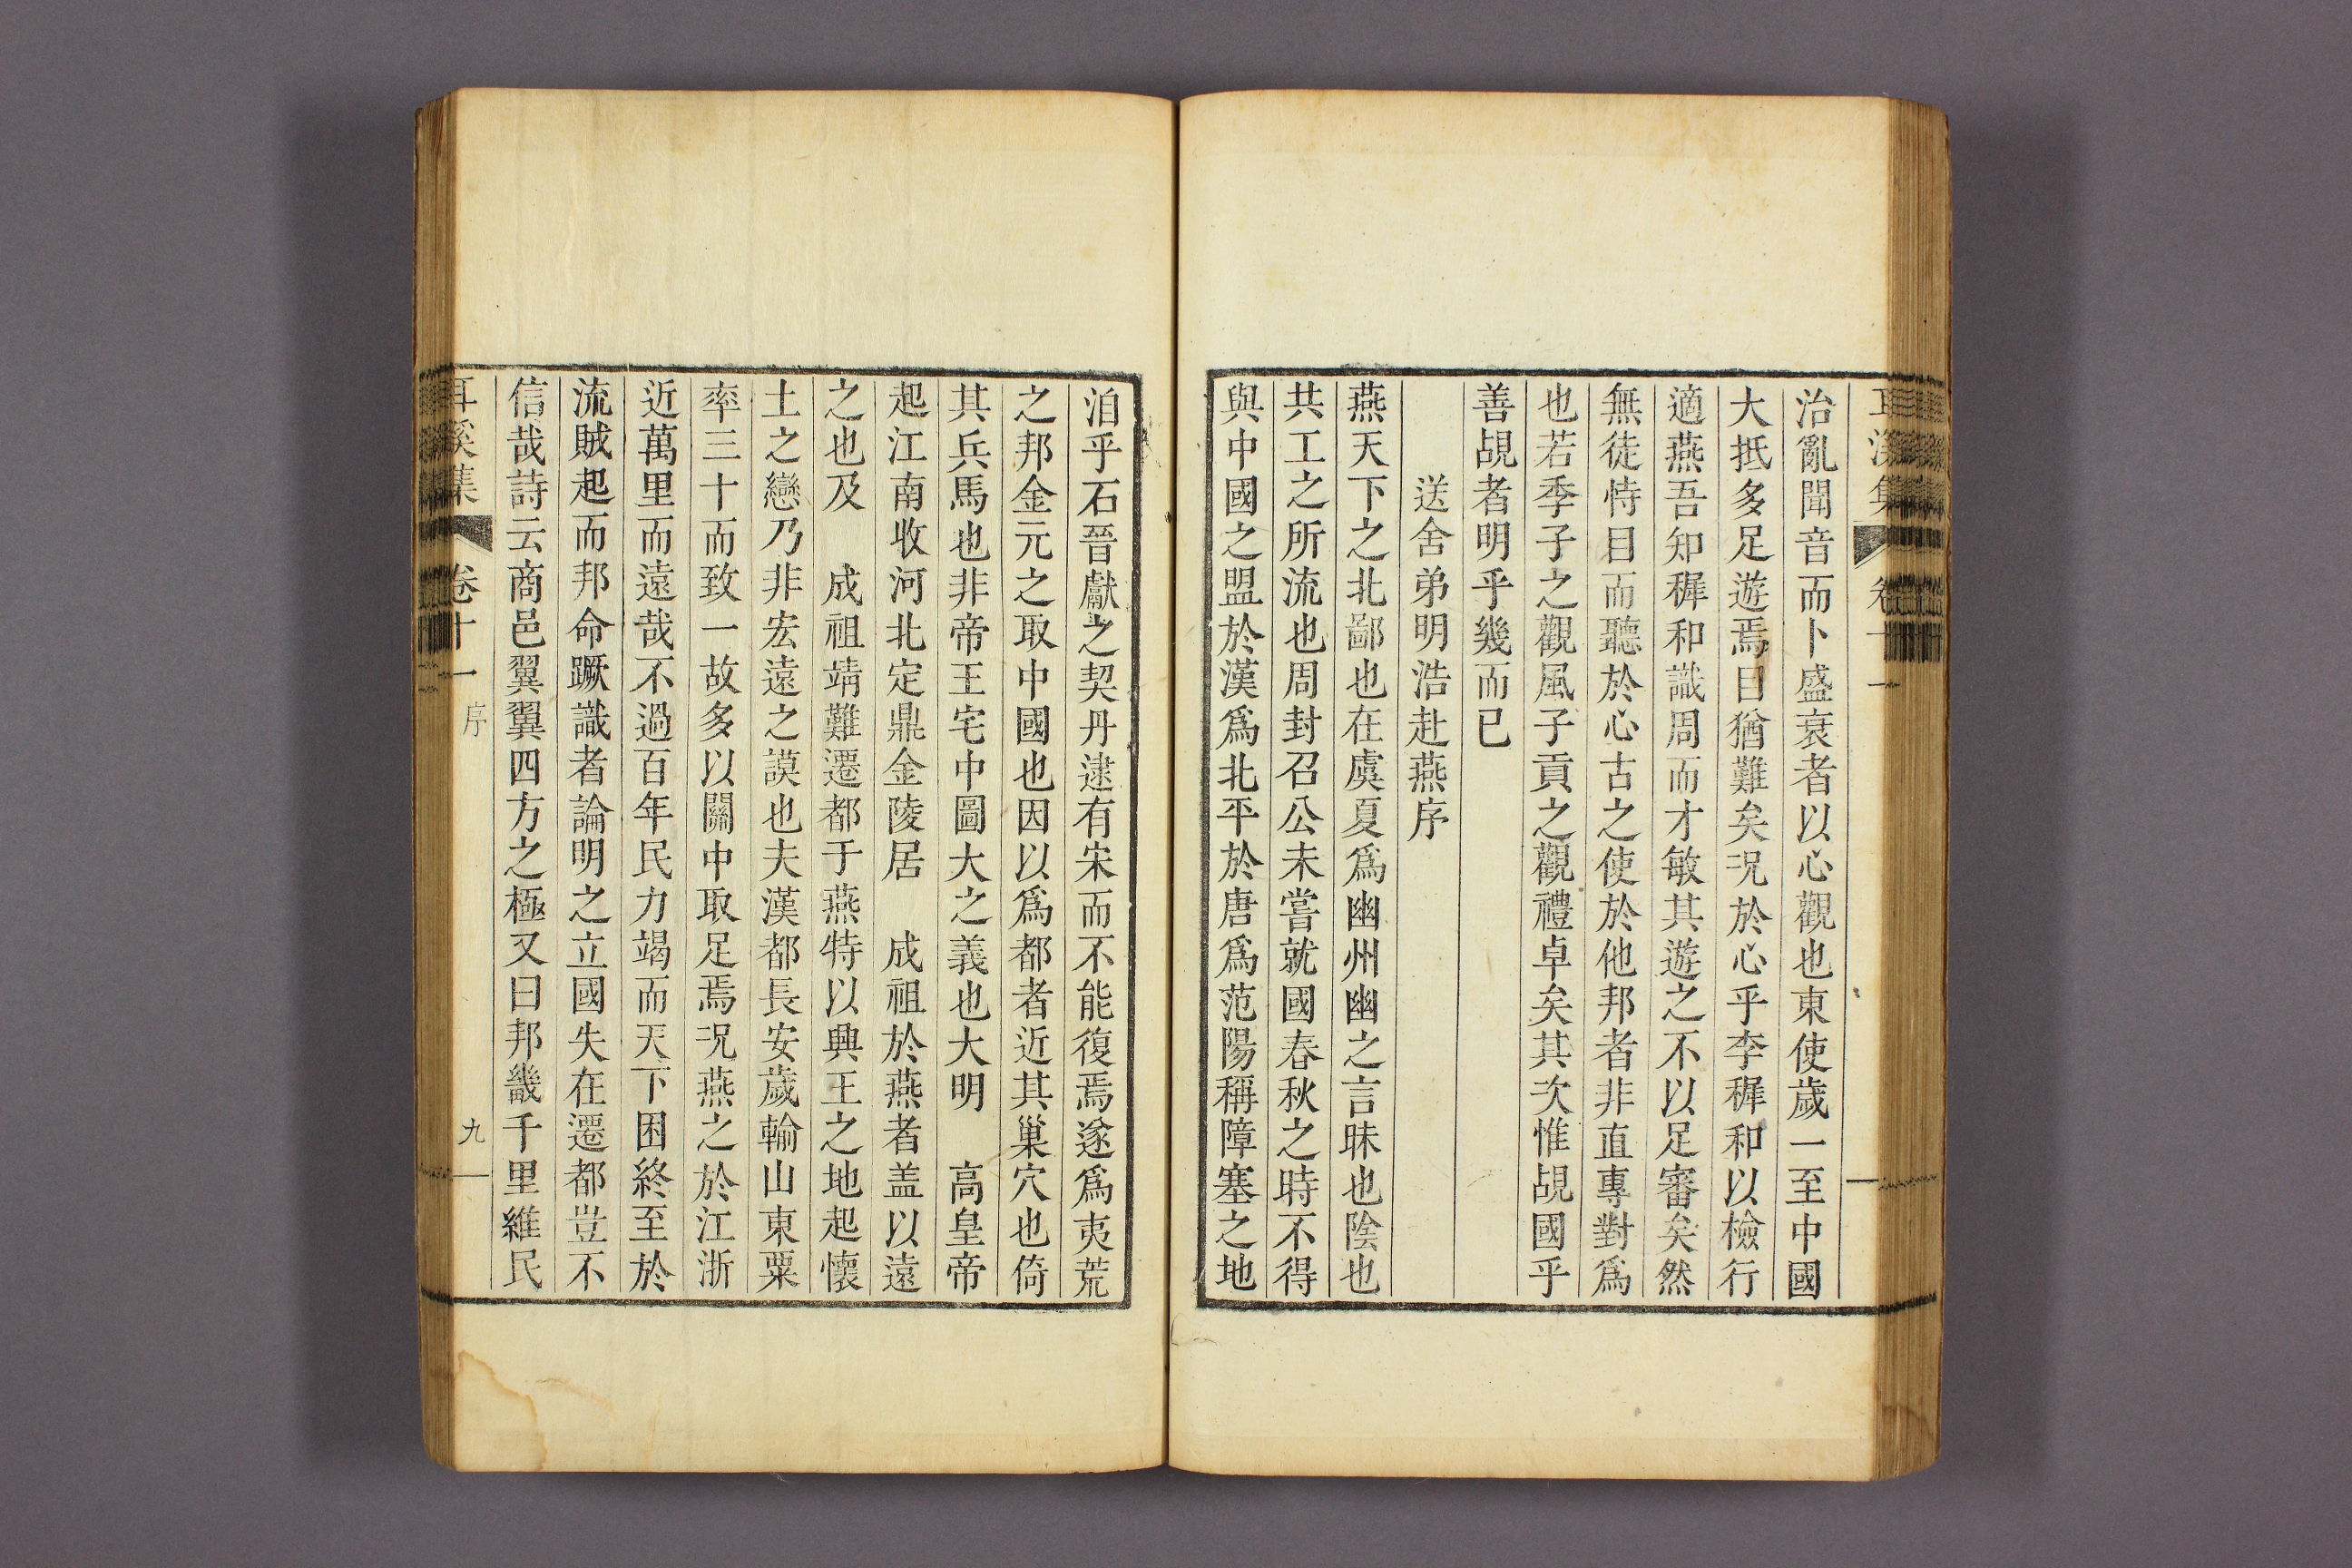 治亂聞音而卜盛衰者以心觀也東使歲一至中國
大抵多足遊焉目猶難矣況於心乎李穉和以檢行
適燕吾知穉和識周而才敏其遊之不以足審矣然
無徒恃目而聽於心古之使於他邦者非直專對爲
也若季子之觀風子貢之觀禮卓矣其次惟覘國乎
善覘者明乎幾而已
送舍弟明浩赴燕序
燕天下之北鄙也在虞夏爲幽州幽之言昧也陰也
共工之所流也周封召公未嘗就國春秋之時不得
與中國之盟於漢爲北平於唐爲范陽稱障塞之地
洎乎石晉獻之契丹逮有宋而不能復焉遂爲夷荒
之邦金元之取中國也因以爲都者近其巢穴也倚
其兵馬也非帝王宅中圖大之義也大明　高皇帝
起江南收河北定鼎金陵居　成祖於燕者盖以遠
之也及　成祖靖難遷都于燕特以興王之地起懷
土之戀乃非宏遠之謨也夫漢都長安歲輸山東粟
率三十而致一故多以關中取足焉況燕之於江浙
近萬里而遠哉不過百年民力竭而天下困終至於
流賊起而邦命蹶識者論明之立國失在遷都豈不
信哉詩云商邑翼翼四方之極又曰邦畿千里維民
耳溪集　卷十一　序　九